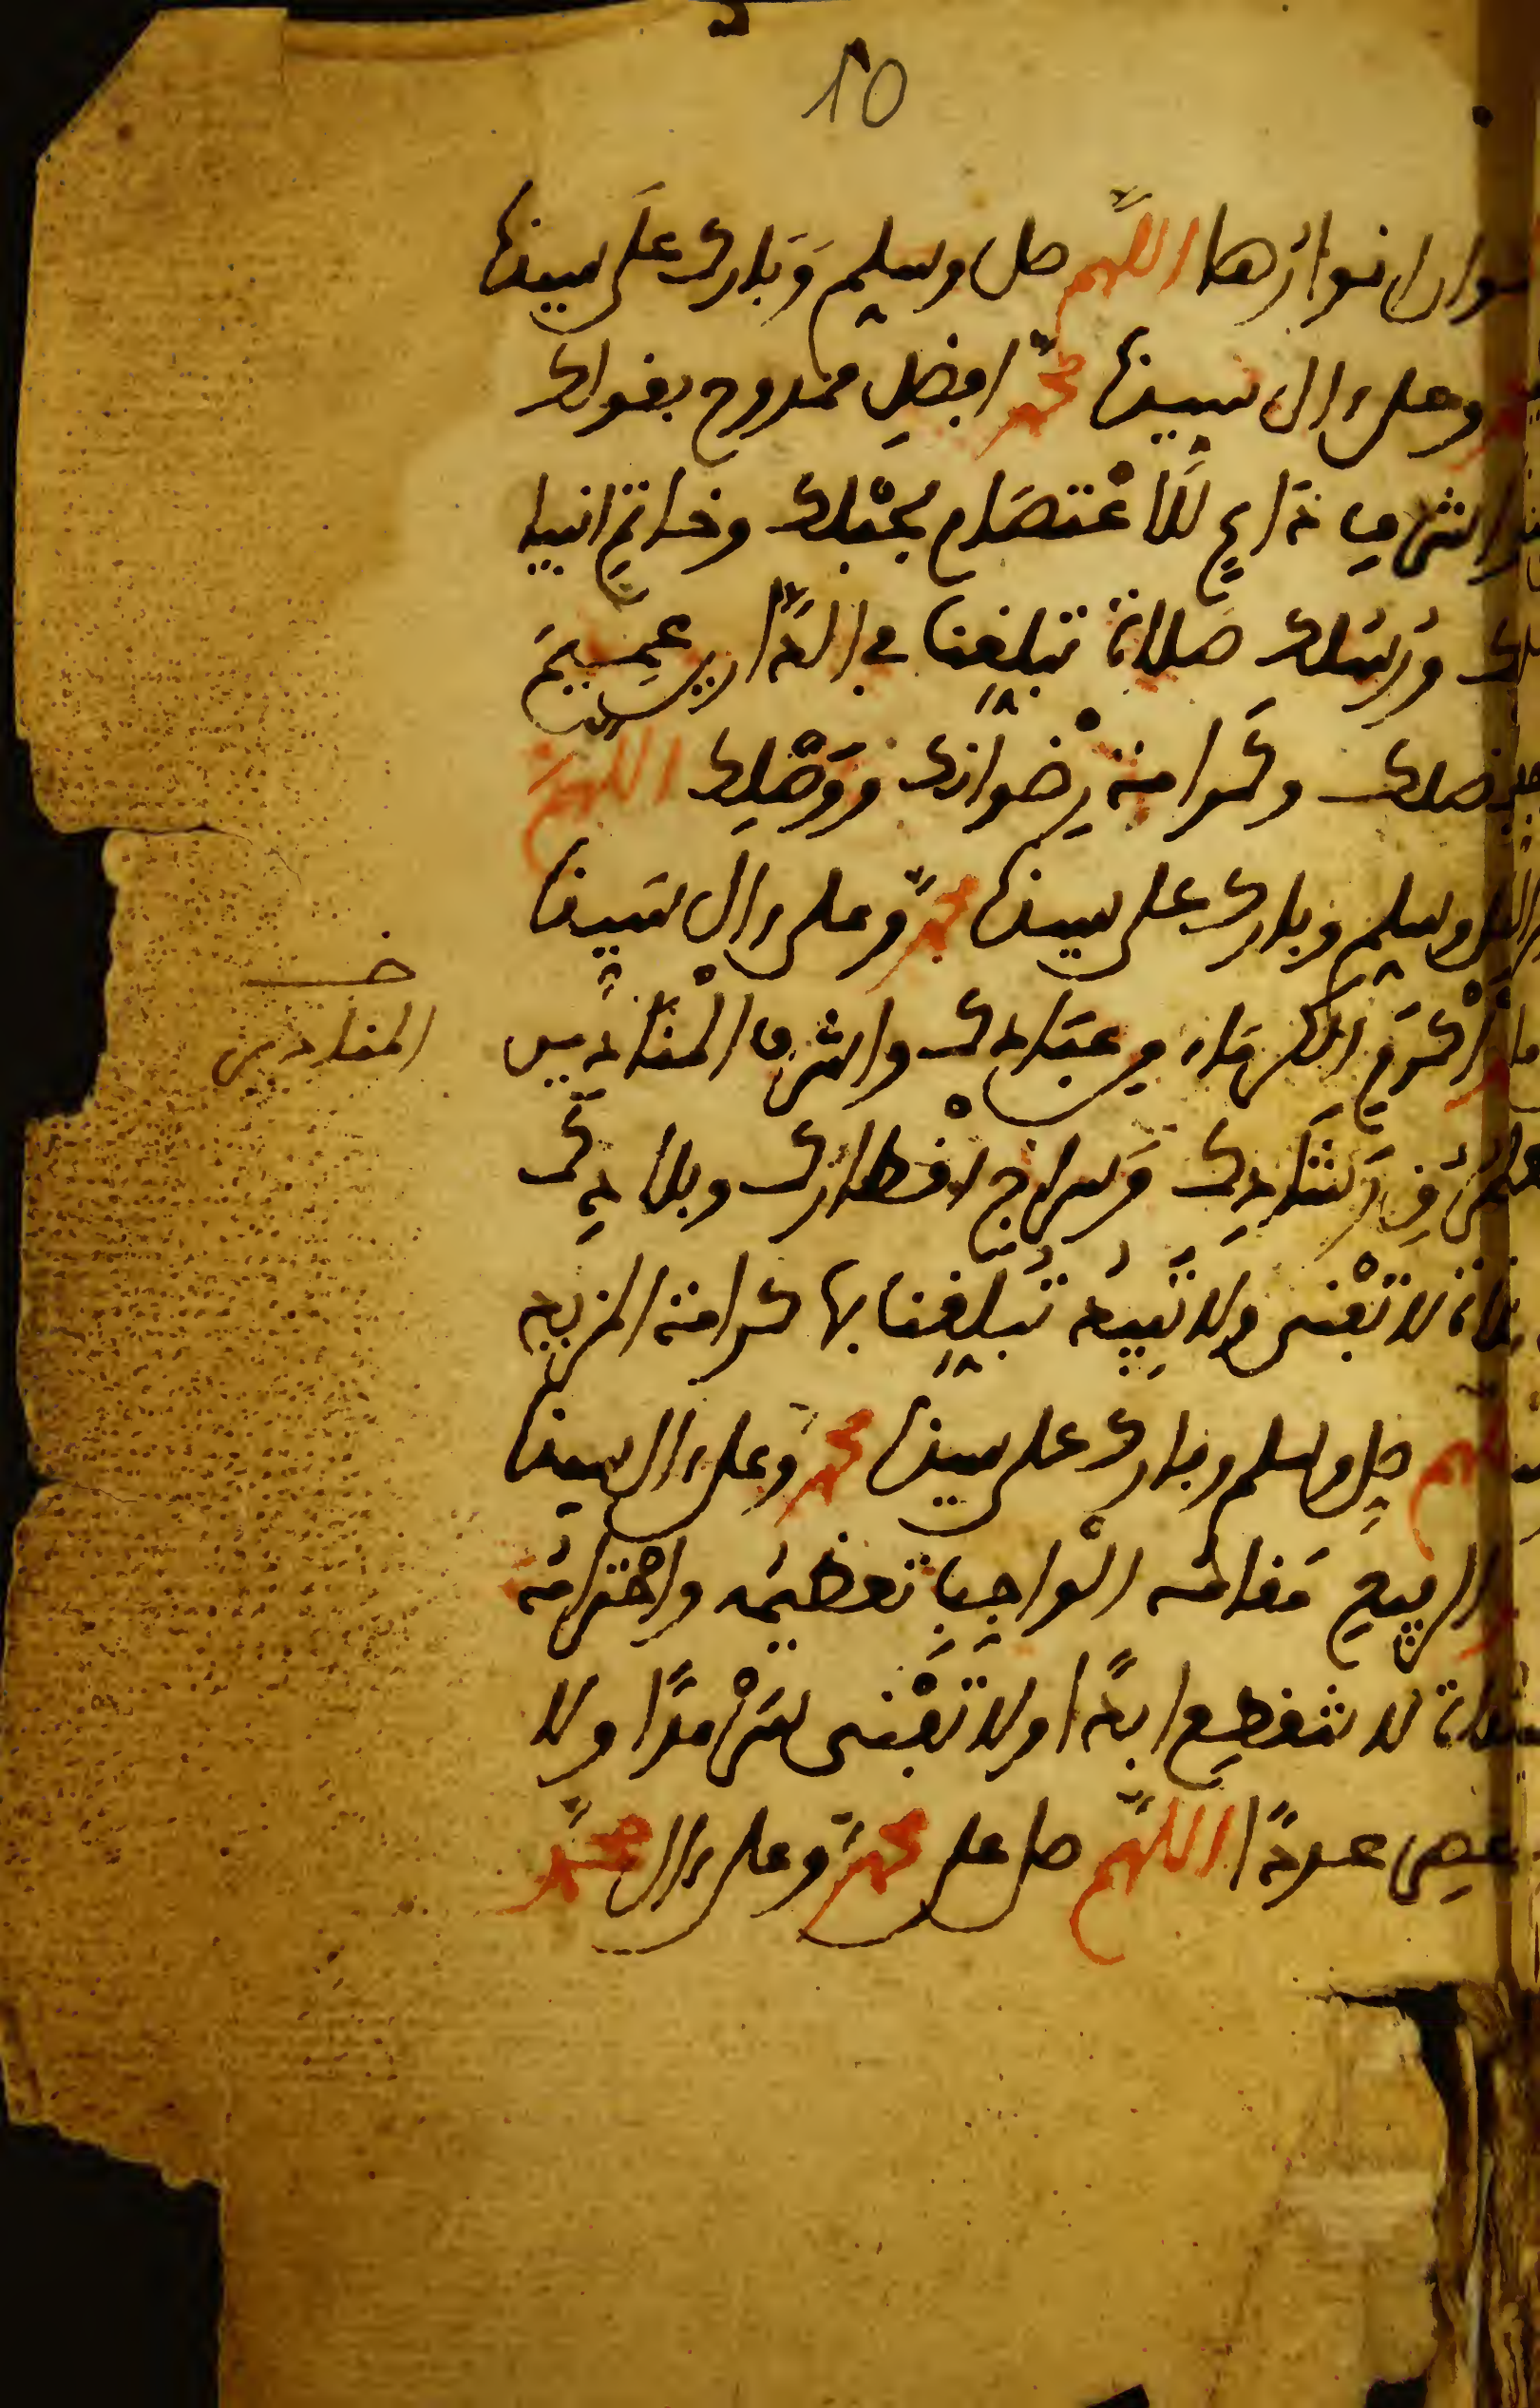 10
انوارها اللهم صل وسلم وبارك على سيدنا
وعلى ءال سيدنا محمد افضل ممدوح بقولك
اشرف داع للاعتصام بحبلك وخاتم انبيا
ورسلك صلاة تبلغنا في الدارين عميم
فضلك وكرامة رضوانك ووصلك اللهم
وسلم وبارك على سيدنا محمد وعلى ءال سيدنا
اكرم الكرماء من عبادك واشرف المنادين
خـ
المنادين
رشادك وسراج اقطارك وبلادك
صلاة لا تفنى ولا تبيد تبلغنا بها كرامة المزيد
اللهم صل وسلم وبارك على سيدنا محمد وعلى ءال سيدنا
الرفيع مقامه الواجب تعظيمه واحترامه
صلاة لا تنقطع ابدا ولا تفنى سرمدا ولا
عددا اللهم صل على محمد وعلى ءال محمد